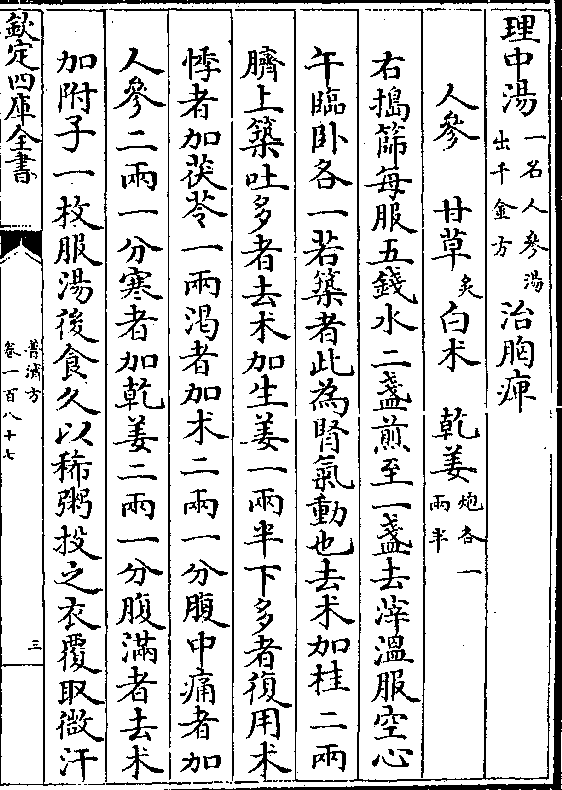 理中湯一名人參湯出千金方 治胸痺
人參 甘草炙 白术 乾姜炮各一兩半
右搗篩每服五錢水二盞煎至一盞去滓溫服空心
午臨卧各一若築者此為腎氣動也去术加桂二兩
臍上築吐多者去术加生姜一兩半下多者復用术
悸者加茯苓一兩渴者加术二兩一分腹中痛者加
人參二兩一分寒者加乾姜二兩一分腹滿者去术
加附子一枚服湯後食久以稀粥投之衣覆取微汗
欽定四庫全書
普濟方
卷一百八十七
三